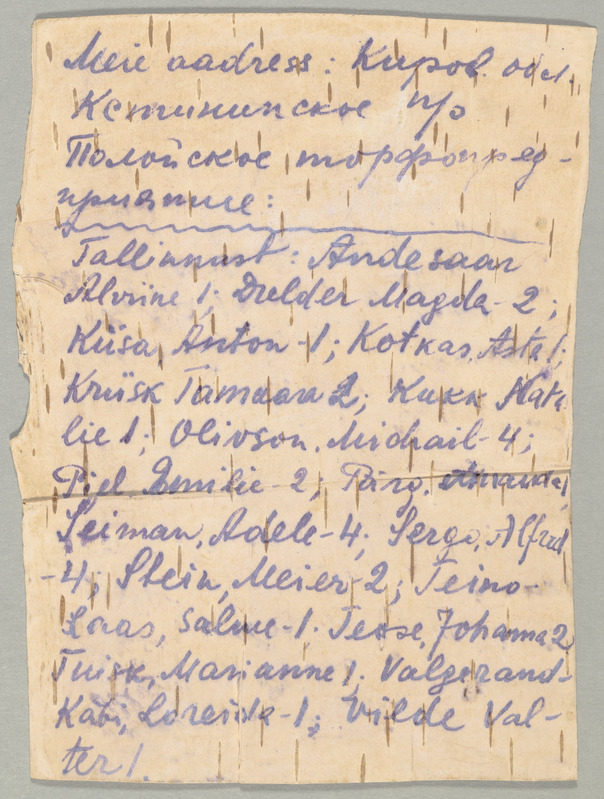 Meie aadress: Киров. обл.
Кстининское п/о
Полойское торфопред-
приятие:
Tallinnast: Andesaar
Alviine 1; Dulder Magda-2;
Kiisa, Anton-1; Kotkas, Asta 1;
Kriisk Tamaara 2; Kukk Nata
lie 1; Olivson, Michail-4;
Piel Emilie-2; Pärg,
Seiman, Adele-4; Sergo, Alfred
-4; Stein, Meier-2; Teino-
Laas, Salme-1. Tease, Johanna 2
Tuisk, Marianne 1; Valgerand-
Kabi, Loreida-1; Vilde Val-
ter 1.